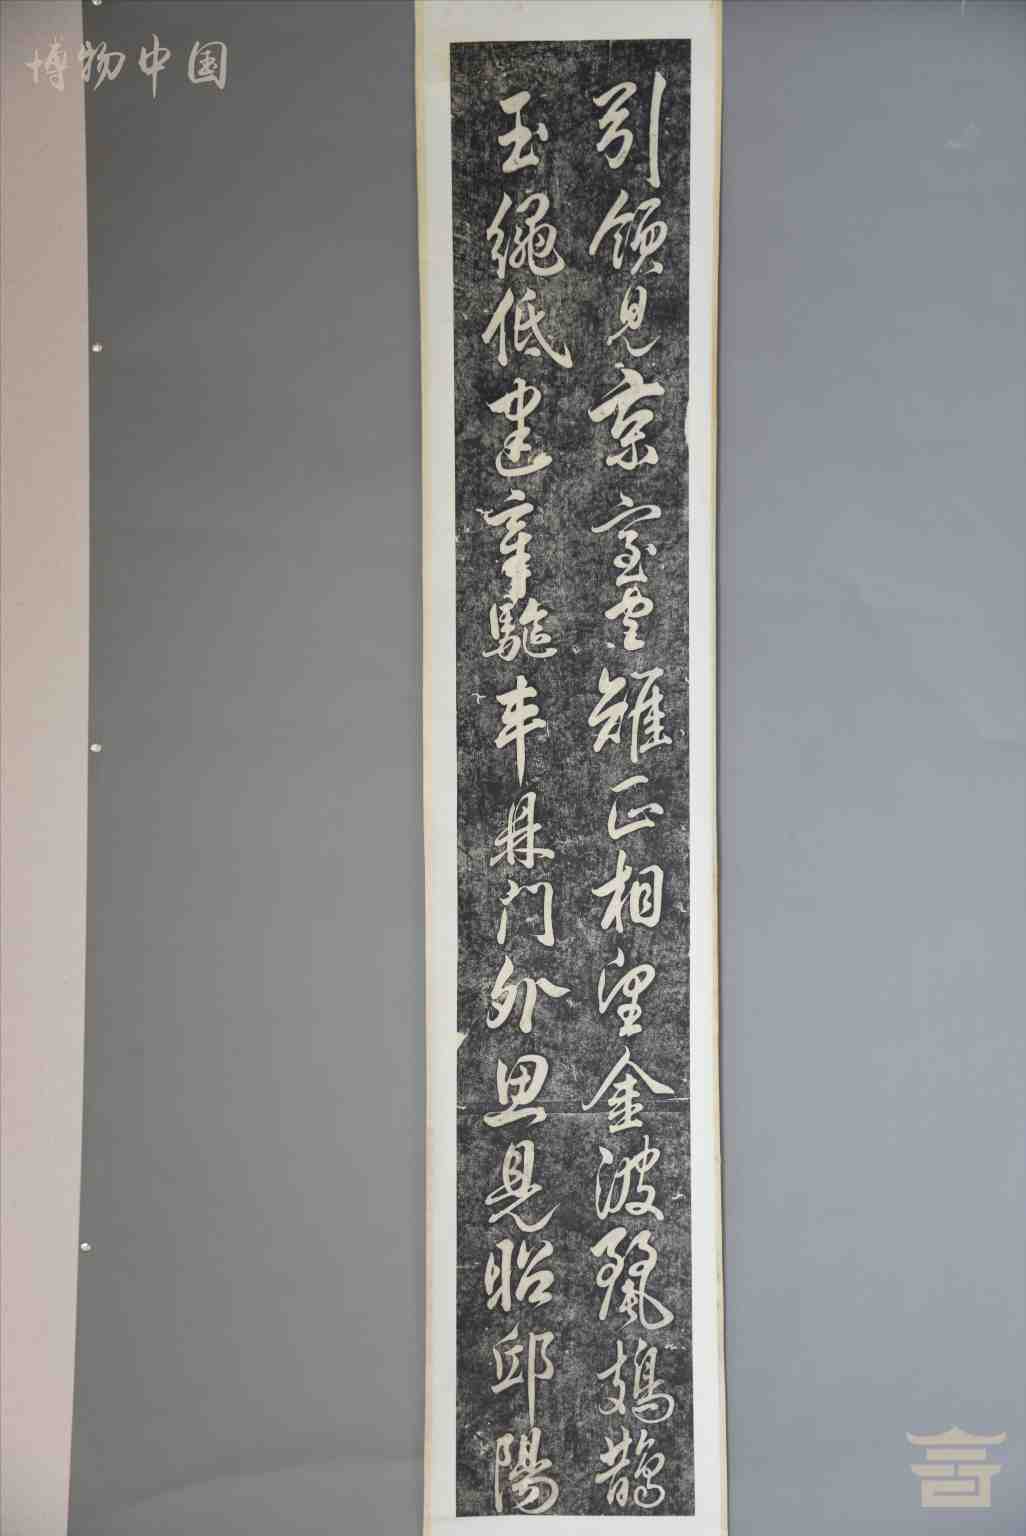 博物中国
引领見京室宫雉正相望金波麗鳷鵲
玉繩低建章驅車鼎門外思見昭邱陽